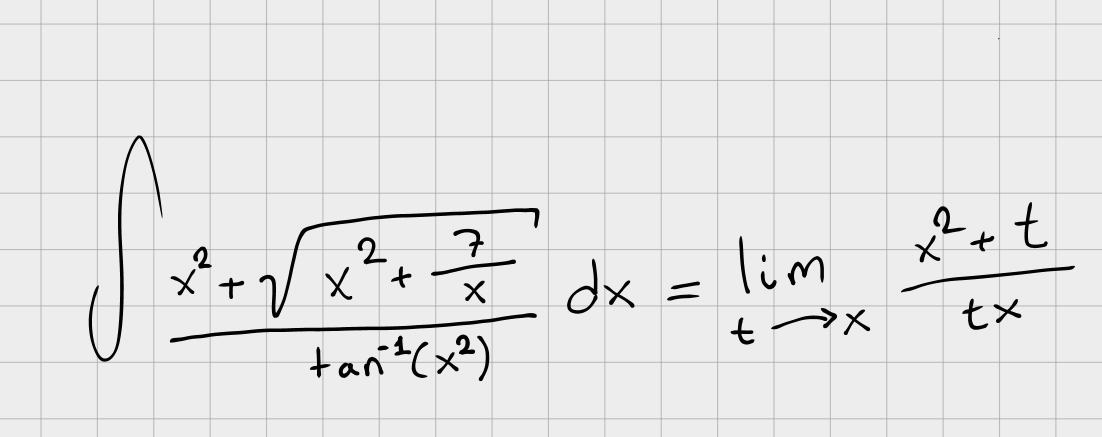 ∫ (x² + √(x² + 7/x)) / (tan⁻¹(x²)) dx = lim_{t→x} (x² + t) / (tx)